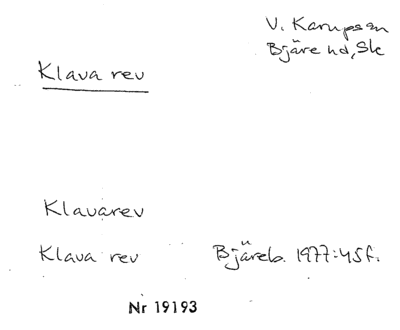 V. Karupsan
Bjäre hd, Sk
Klava rev
Klavarev
Klava rev Bjäreb. 1977:45f.
Nr 19193